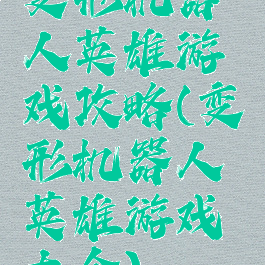 变形机器
人英雄游
戏攻略(变
形机器人
英雄游戏
大全)